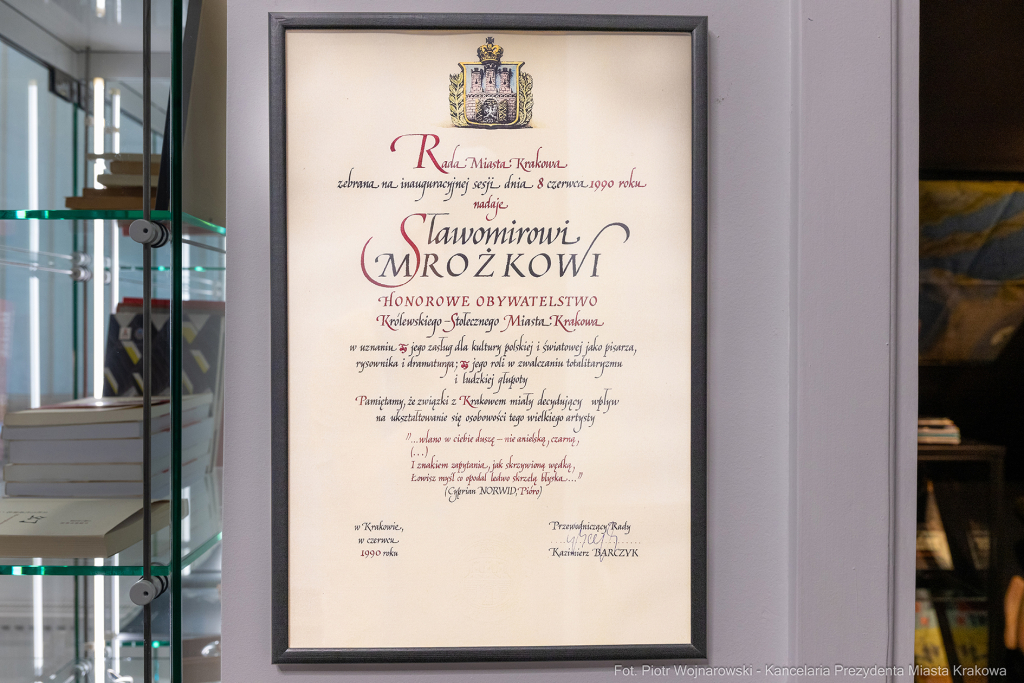 Rada Miasta Krakowa
zebrana na inauguracyjnej sesji dnia 8 czerwca 1990 roku
nadaje
Sławomirowi
MROŻKOWI
HONOROWE OBYWATELSTWO
Królewskiego-Stołecznego Miasta Krakowa
w uznaniu jego zasług dla kultury polskiej i światowej jako pisarza,
rysownika i dramaturga; jego roli w zwalczaniu totalitaryzmu
i ludzkiej głupoty
Pamiętamy, że związki z Krakowem miały decydujący wpływ
na ukształtowanie się osobowości tego wielkiego artysty
"...wlano w ciebie duszę – nie anielską, czarną,
(...)
I znakiem zapytania, jak skrzywioną wędką,
Łowisz myśl co opodal ledwo skrzelą błyska..."
(Cyprian NORWID, Pióro)
w Krakowie,
w czerwcu
1990 roku
Przewodniczący Rady
Kazimierz BARCZYK
Fot. Piotr Wojnarowski - Kancelaria Prezydenta Miasta Krakowa